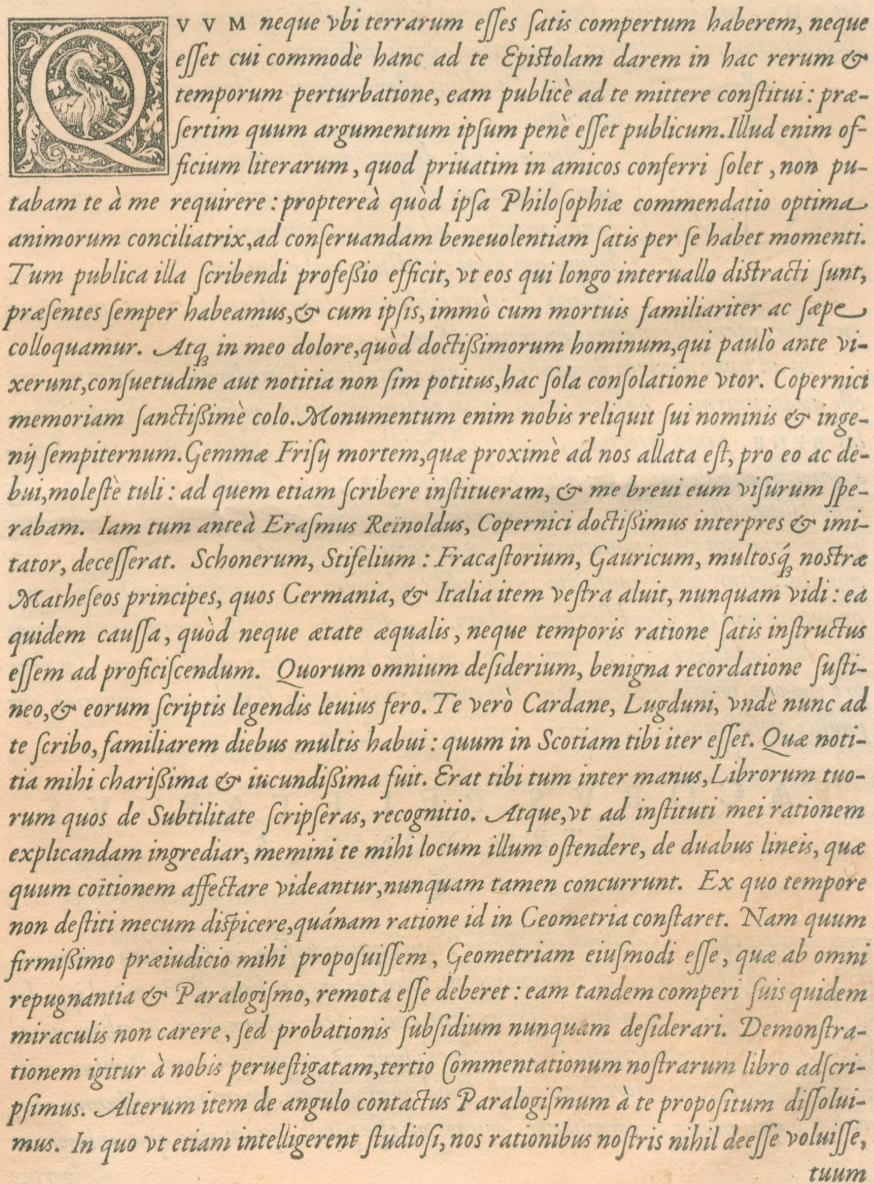 QVVM neque vbi terrarum eſſes ſatis compertum haberem, neque
eſſet cui commodè hanc ad te Epiſtolam darem in hac rerum &
temporum perturbatione, eam publicè ad te mittere conſtitui: præ-
ſertim quum argumentum ipſum penè eſſet publicum. Illud enim of-
ficium literarum, quod priuatim in amicos conferri ſolet, non pu-
tabam te à me requirere: proptereà quòd ipſa Philoſophiæ commendatio optima
animorum conciliatrix, ad conſeruandam beneuolentiam ſatis per ſe habet momenti.
Tum publica illa ſcribendi profeßio efficit, vt eos qui longo interuallo diſtracti ſunt,
præſentes ſemper habeamus, & cum ipſis, immò cum mortuis familiariter ac ſæpe
colloquamur. Atqꝫ in meo dolore, quòd doctißimorum hominum, qui paulò ante vi-
xerunt, conſuetudine aut notitia non ſim potitus, hac ſola conſolatione vtor. Copernici
memoriam ſanctißimè colo. Monumentum enim nobis reliquit ſui nominis & inge-
nij ſempiternum. Gemmæ Friſij mortem, quæ proximè ad nos allata eſt, pro eo ac de-
bui, moleſtè tuli: ad quem etiam ſcribere inſtitueram, & me breui eum viſurum ſpe-
rabam. Iam tum anteà Eraſmus Reïnoldus, Copernici doctißimus interpres & imi-
tator, deceſſerat. Schonerum, Stifelium: Fracaſtorium, Gauricum, multosq́ꝫ noſtræ
Matheſeos principes, quos Germania, & Italia item veſtra aluit, nunquam vidi: ea
quidem cauſſa, quòd neque ætate æqualis, neque temporis ratione ſatis inſtructus
eſſem ad proficiſcendum. Quorum omnium deſiderium, benigna recordatione ſuſti-
neo, & eorum ſcriptis legendis leuius fero. Te verò Cardane, Lugduni, vndè nunc ad
te ſcribo, familiarem diebus multis habui: quum in Scotiam tibi iter eſſet. Quæ noti-
tia mihi charißima & iucundißima fuit. Erat tibi tum inter manus, Librorum tuo-
rum quos de Subtilitate ſcripſeras, recognitio. Atque, vt ad inſtituti mei rationem
explicandam ingrediar, memini te mihi locum illum oſtendere, de duabus lineis, quæ
quum coïtionem affectare videantur, nunquam tamen concurrunt. Ex quo tempore
non deſtiti mecum diſpicere, quánam ratione id in Geometria conſtaret. Nam quum
firmißimo præiudicio mihi propoſuiſſem, Geometriam eiuſmodi eſſe, quæ ab omni
repugnantia & Paralogiſmo, remota eſſe deberet: eam tandem comperi ſuis quidem
miraculis non carere, ſed probationis ſubſidium nunquam deſiderari. Demonſtra-
tionem igitur à nobis perueſtigatam, tertio Commentationum noſtrarum libro adſcri-
pſimus. Alterum item de angulo contactus Paralogiſmum à te propoſitum diſſolui-
mus. In quo vt etiam intelligerent ſtudioſi, nos rationibus noſtris nihil deeſſe voluiſſe,
tuum